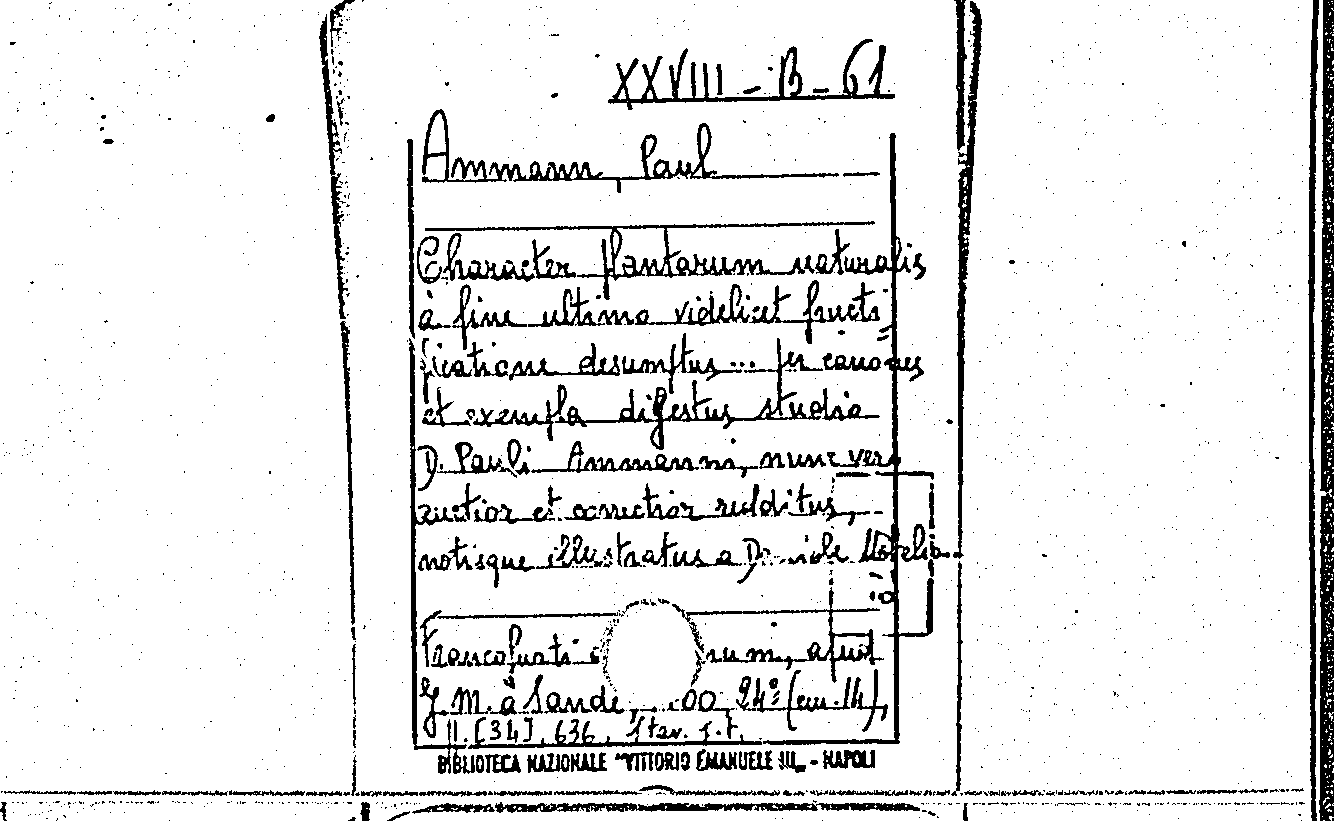 XXVIII - B - 61
Ammann, Paul
Character plantarum naturalis
à fine ultimo videlicet fructi=
ficatione desumptus... per canones
et exempla digestus studio
D. Pauli Ammanni, nunc vero
auctior et correctior redditus,
notisque illustratus a Daniele Nebelio...
Francofurti num, apud
J. M. à Sande, 00, 24° (cm. 14),
[34], 636, 1 tav. f. t.
BIBLIOTECA NAZIONALE "VITTORIO EMANUELE III„ - NAPOLI